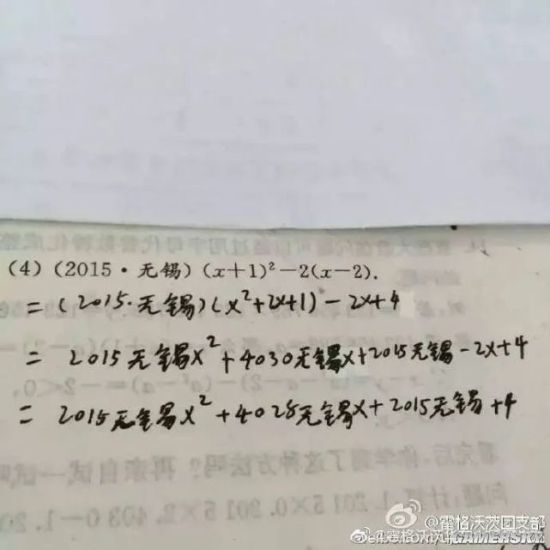 (4)(2015·无锡)(x+1)²-2(x-2).
=(2015·无锡)(x²+2x+1)-2x+4
= 2015无锡x²+4030无锡x+2015无锡-2x+4
= 2015无锡x²+4028无锡x+2015无锡+4
@霍格沃茨团支部